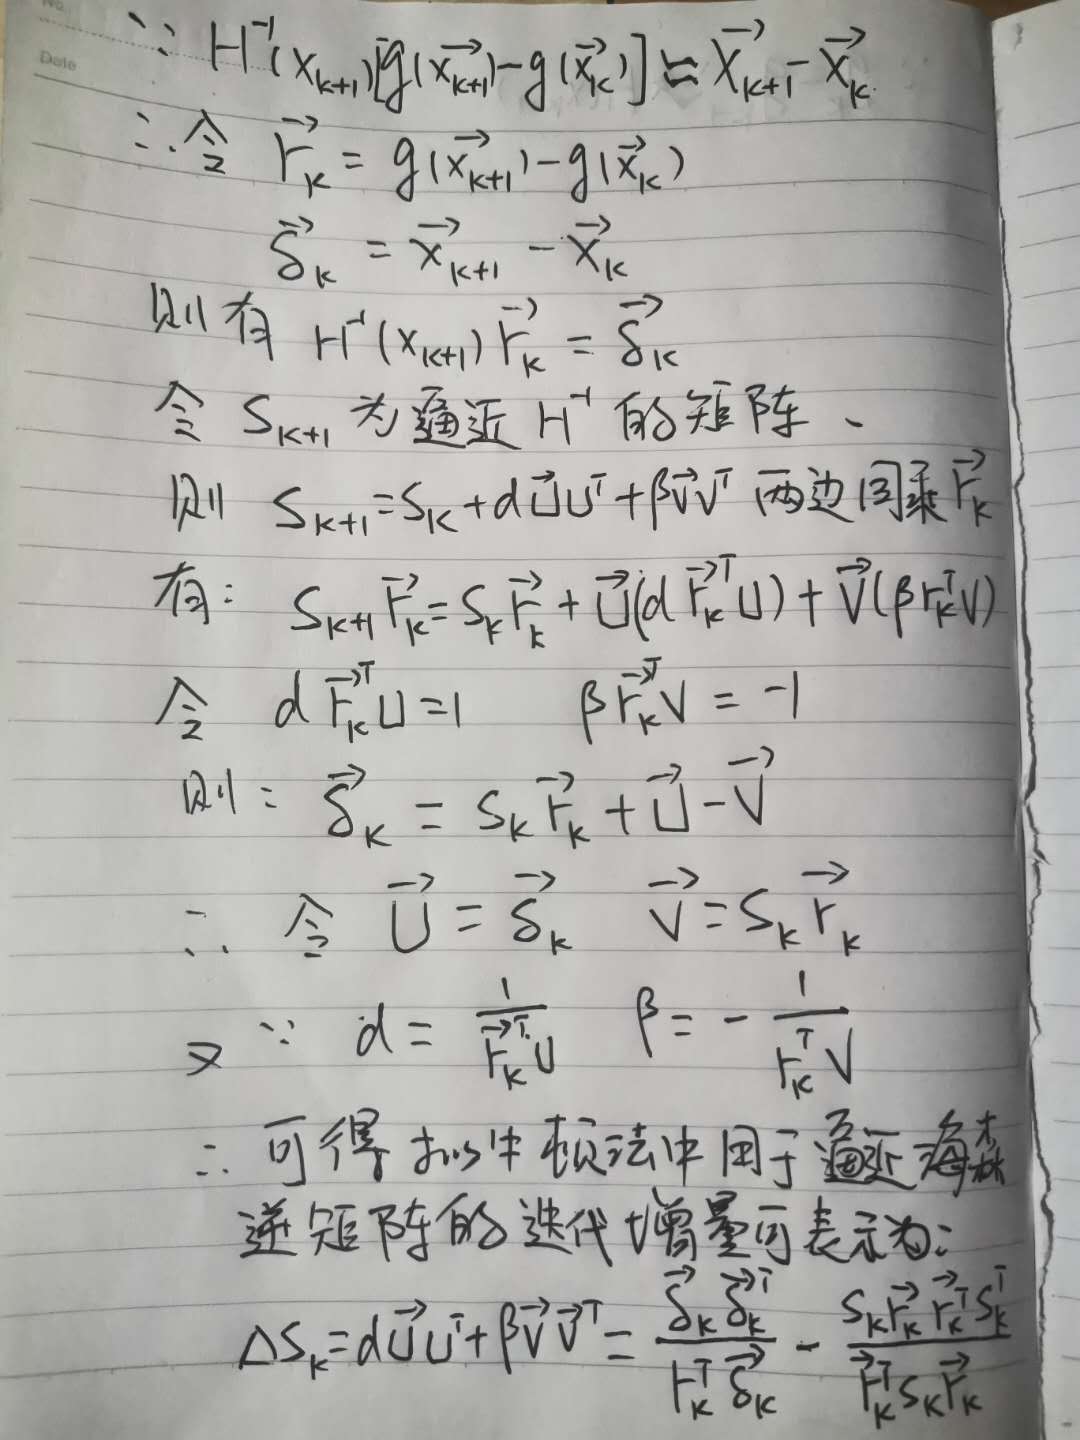 No.
Date
∵ H⁻¹(x_{k+1})[g(x⃗_{k+1})-g(x⃗_k)] ≈ x⃗_{k+1}-x⃗_k
∴令 r⃗_k = g(x⃗_{k+1})-g(x⃗_k)
δ⃗_k = x⃗_{k+1} - x⃗_k
则有 H⁻¹(x_{k+1}) r⃗_k = δ⃗_k
令 S_{k+1} 为逼近 H⁻¹ 的矩阵、
则 S_{k+1}=S_k+αU⃗U^T+βV⃗V^T 两边同乘 r⃗_k
有: S_{k+1}r⃗_k=S_k r⃗_k+U⃗(αr⃗_k^T U)+V⃗(βr_k^T V)
令 αr⃗_k^T U=1 βr⃗_k^T V=-1
则: δ⃗_k = S_k r⃗_k+U⃗-V⃗
∴ 令 U⃗=δ⃗_k V⃗=S_k r⃗_k
又∵ α=1/(r⃗_k^T U) β=-1/(r_k^T V)
∴ 可得拟牛顿法中用于逼近海森
逆矩阵的迭代增量可表示为:
ΔS_k=αU⃗U^T+βV⃗V⃗^T=(δ⃗_k δ⃗_k^T)/(r_k^T δ⃗_k) - (S_k r⃗_k r⃗_k^T S_k^T)/(r⃗_k^T S_k r⃗_k)